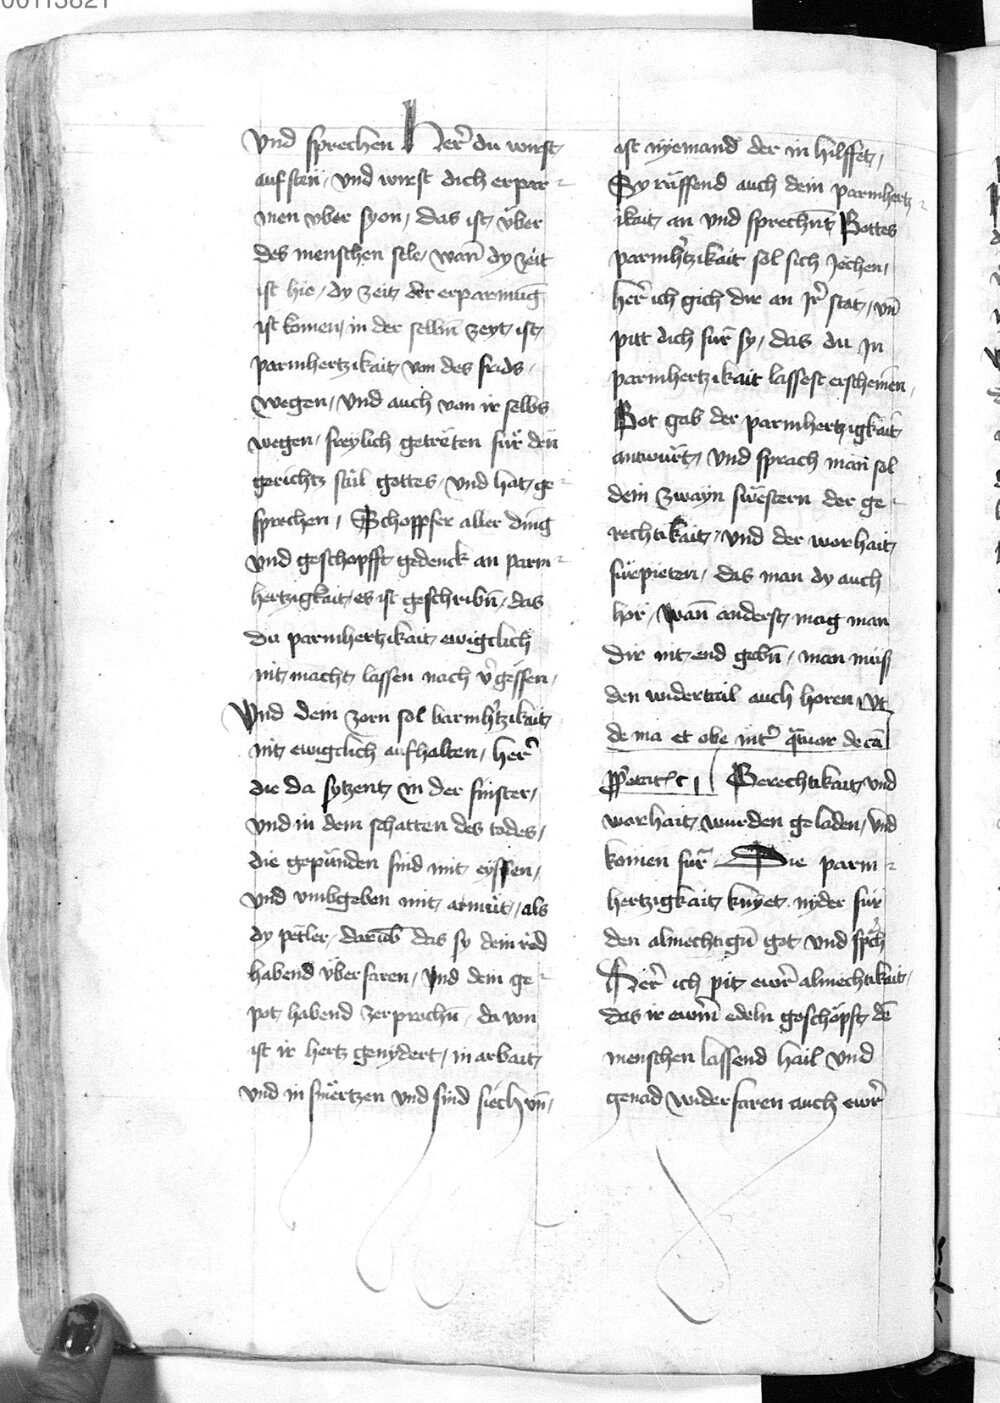 00113821
vnd sprechen Her̄ du wirst
auf sten / vnd wirst dich erpar
men vber syon / das ist vber
des menschen sele / wan̄ dy zeit
ist hie / dy zeit der erparmūg
ist komen / in der selbn̄ zeyt ist
parmhertzikait von des frids
wegen / vnd auch von ir selbs
wegen / freylich getreten für den
gerichtz stul gottes / vnd hat ge
sprochen / Schoppfer aller ding
vnd geschopfft gedenck an parm
hertzigkait / es ist geschribn̄ / das
du parmhertzikait ewigclich
nit macht lassen nach v̄gessen /
Vnd dem zorn sol barmh̄tzikait
nit ewigclich aufhalten / her̄
die da sytzent in der finster /
vnd in dem schatten des todes /
die gepunden sind mit eyssen /
vnd vmbgeben mit armüt / als
dy petler / darūb das sy dein red
habend vberfaren / vnd dem ge
pot habend zerprochn̄ / da von
ist ir hertz genydert / in arbait
vnd in smertzen vnd sind siech vn̄ /
ist nyemand der in hilffet /
Sy rüffend auch dein parmhertz
ikait an vnd sprechn̄t Gottes
parmh̄tzikait sol sich jechen /
her̄ ich gich dir an jr̄ stat / vn̄
pitt dich für sy / das du jn
parmhertzikait lassest erscheinen
Got gab der parmhertzigkait
antwurt / vnd sprach man sol
dein zwayn swestern der ge
rechtikait / vnd der warhait
fürpieten / das man dy auch
hör / wan̄ anderst mag man
dir nit end gebn̄ / man müs
den widertail auch horen vt
de ma et obe int̄
Gerechtikait vnd
warhait wurden geladen / vnd
komen für Die parm
hertzigkait knyet nyder für
den almechtign̄ got vnd sp̄ch
Her̄ ich pit ewr̄ almechtikait /
das ir ewrm̄ edeln geschöpft de
menschen lassend hail vnd
genad widerfaren auch ewr̄